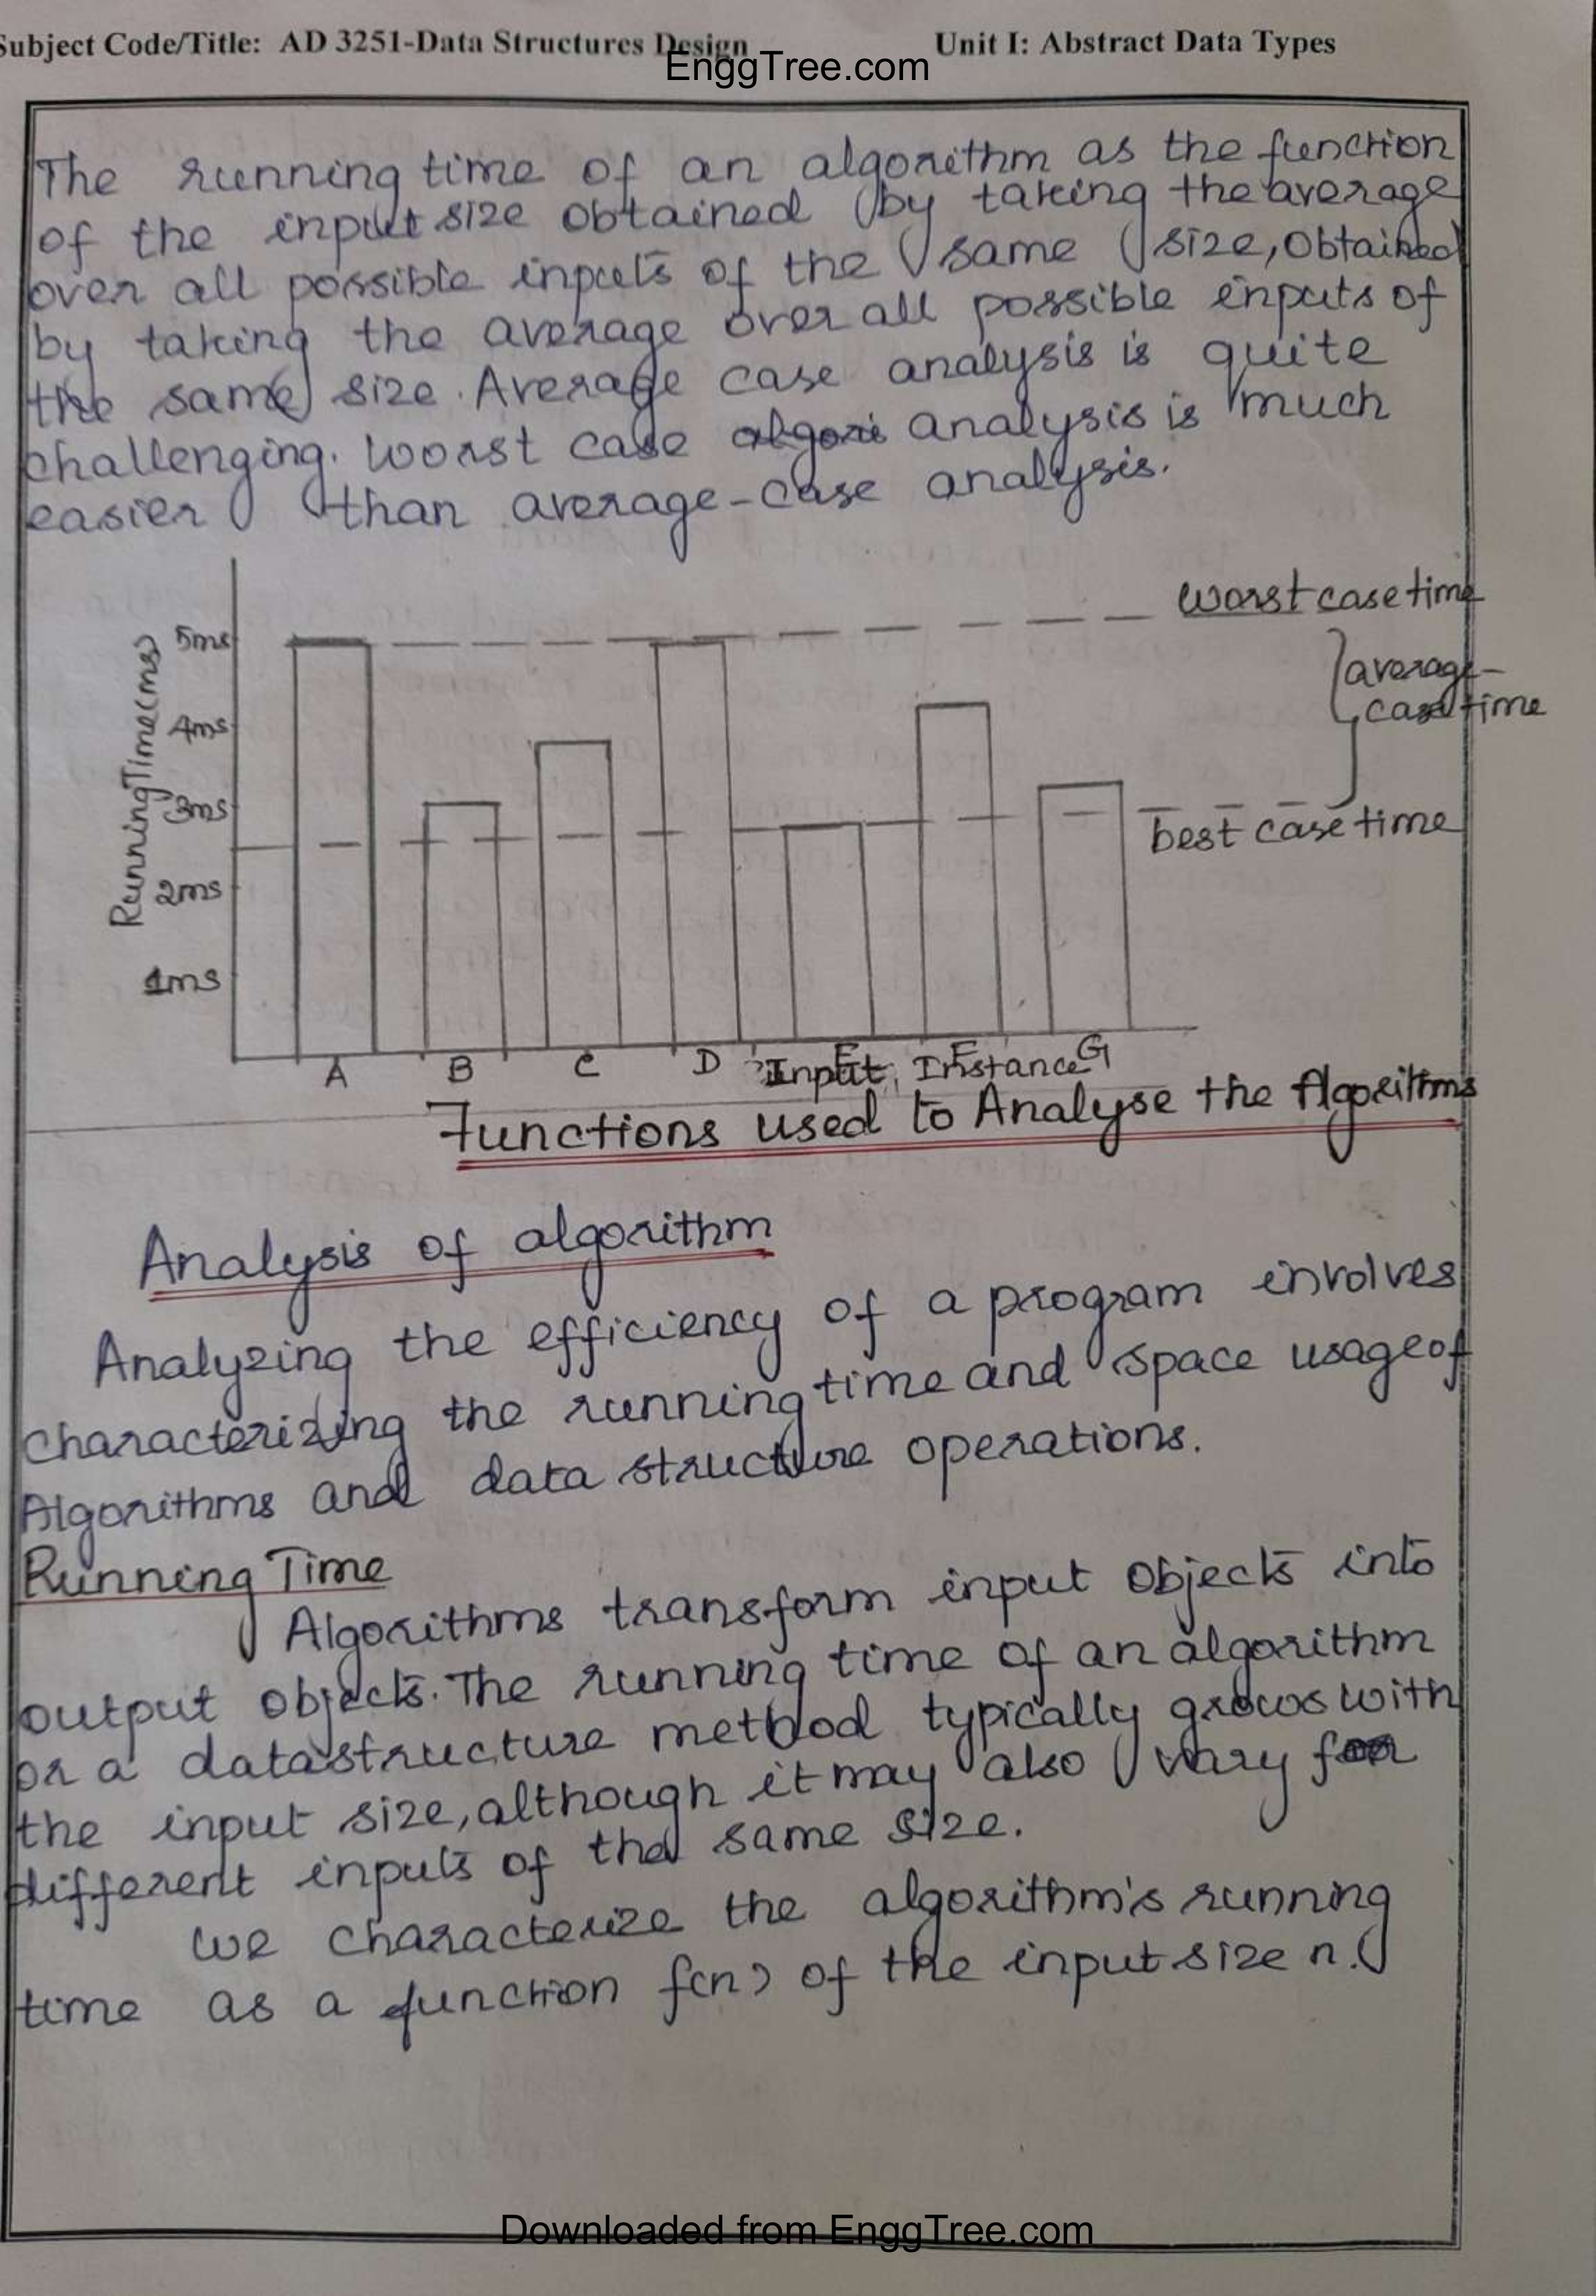 Subject Code/Title: AD 3251-Data Structures Design Unit I: Abstract Data Types
EnggTree.com
The running time of an algorithm as the function
of the input size obtained by taking the average
over all possible inputs of the same size, obtained
by taking the average over all possible inputs of
the same size. Average case analysis is quite
challenging. Worst case analysis is much
easier than average-case analysis.
Running Time (ms)
worst case time
5ms
average-
case time
4ms
3ms
best case time
2ms
1ms
A B C D E F G
Input Instance
Functions used to Analyse the Algorithms
Analysis of algorithm
Analyzing the efficiency of a program involves
characterizing the running time and space usage of
Algorithms and data structure operations.
Running Time
Algorithms transform input objects into
output objects. The running time of an algorithm
or a datastructure method typically grows with
the input size, although it may also vary for
different inputs of the same size.
we characterize the algorithm's running
time as a function f(n) of the input size n.
Downloaded from EnggTree.com